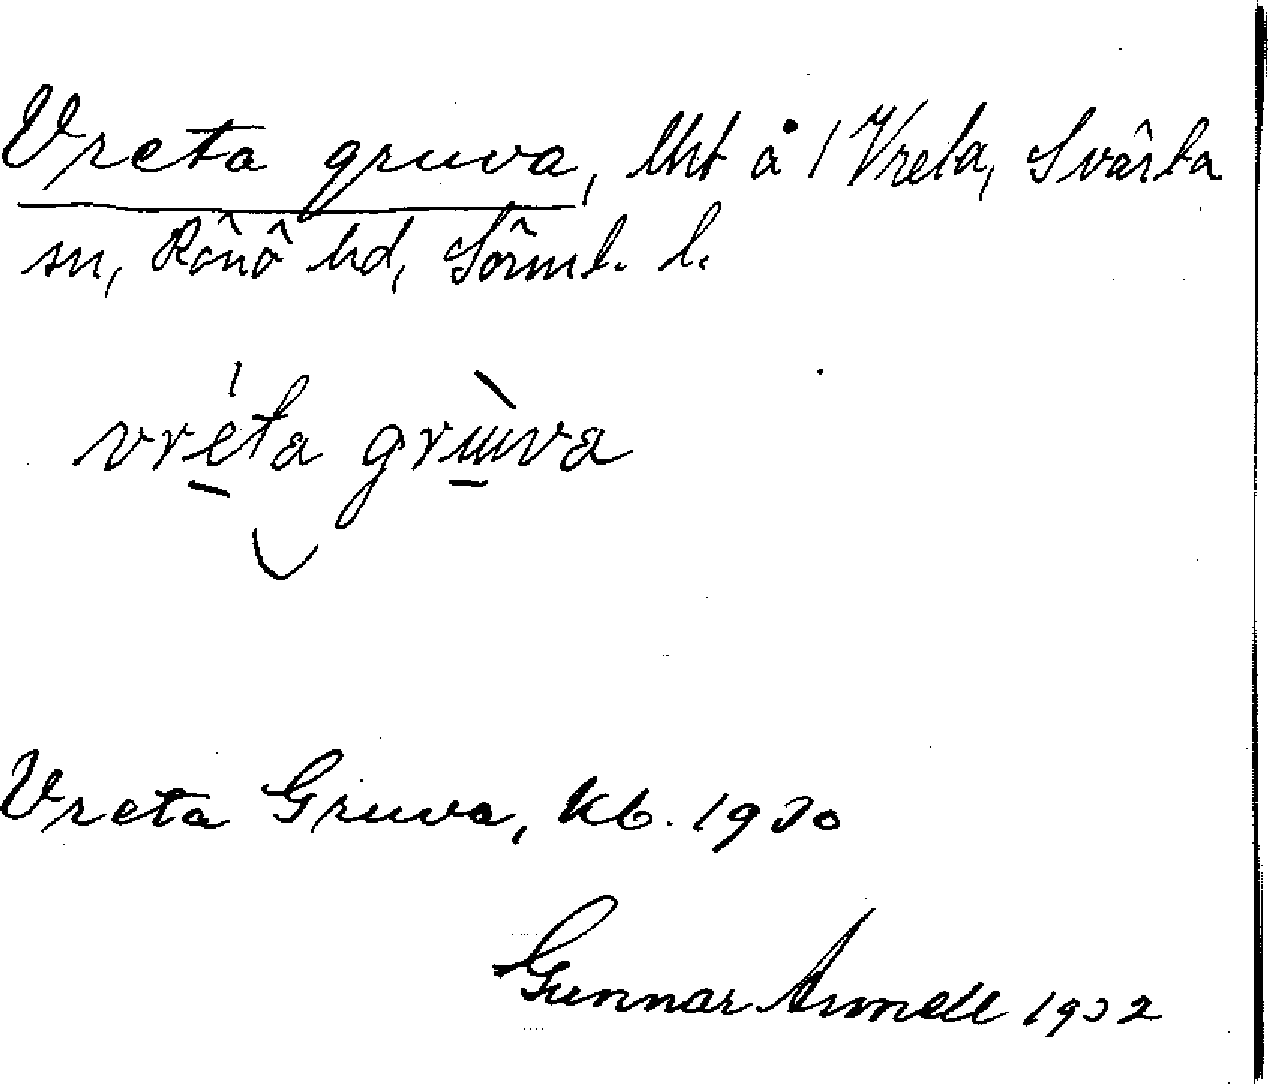 Vreta gruva, lht å 1 Vreta, Svärta
sn, Rönö hd, Sörml. l.
vréta grùva
Vreta Gruva, kb. 1930
Gunnar 1932